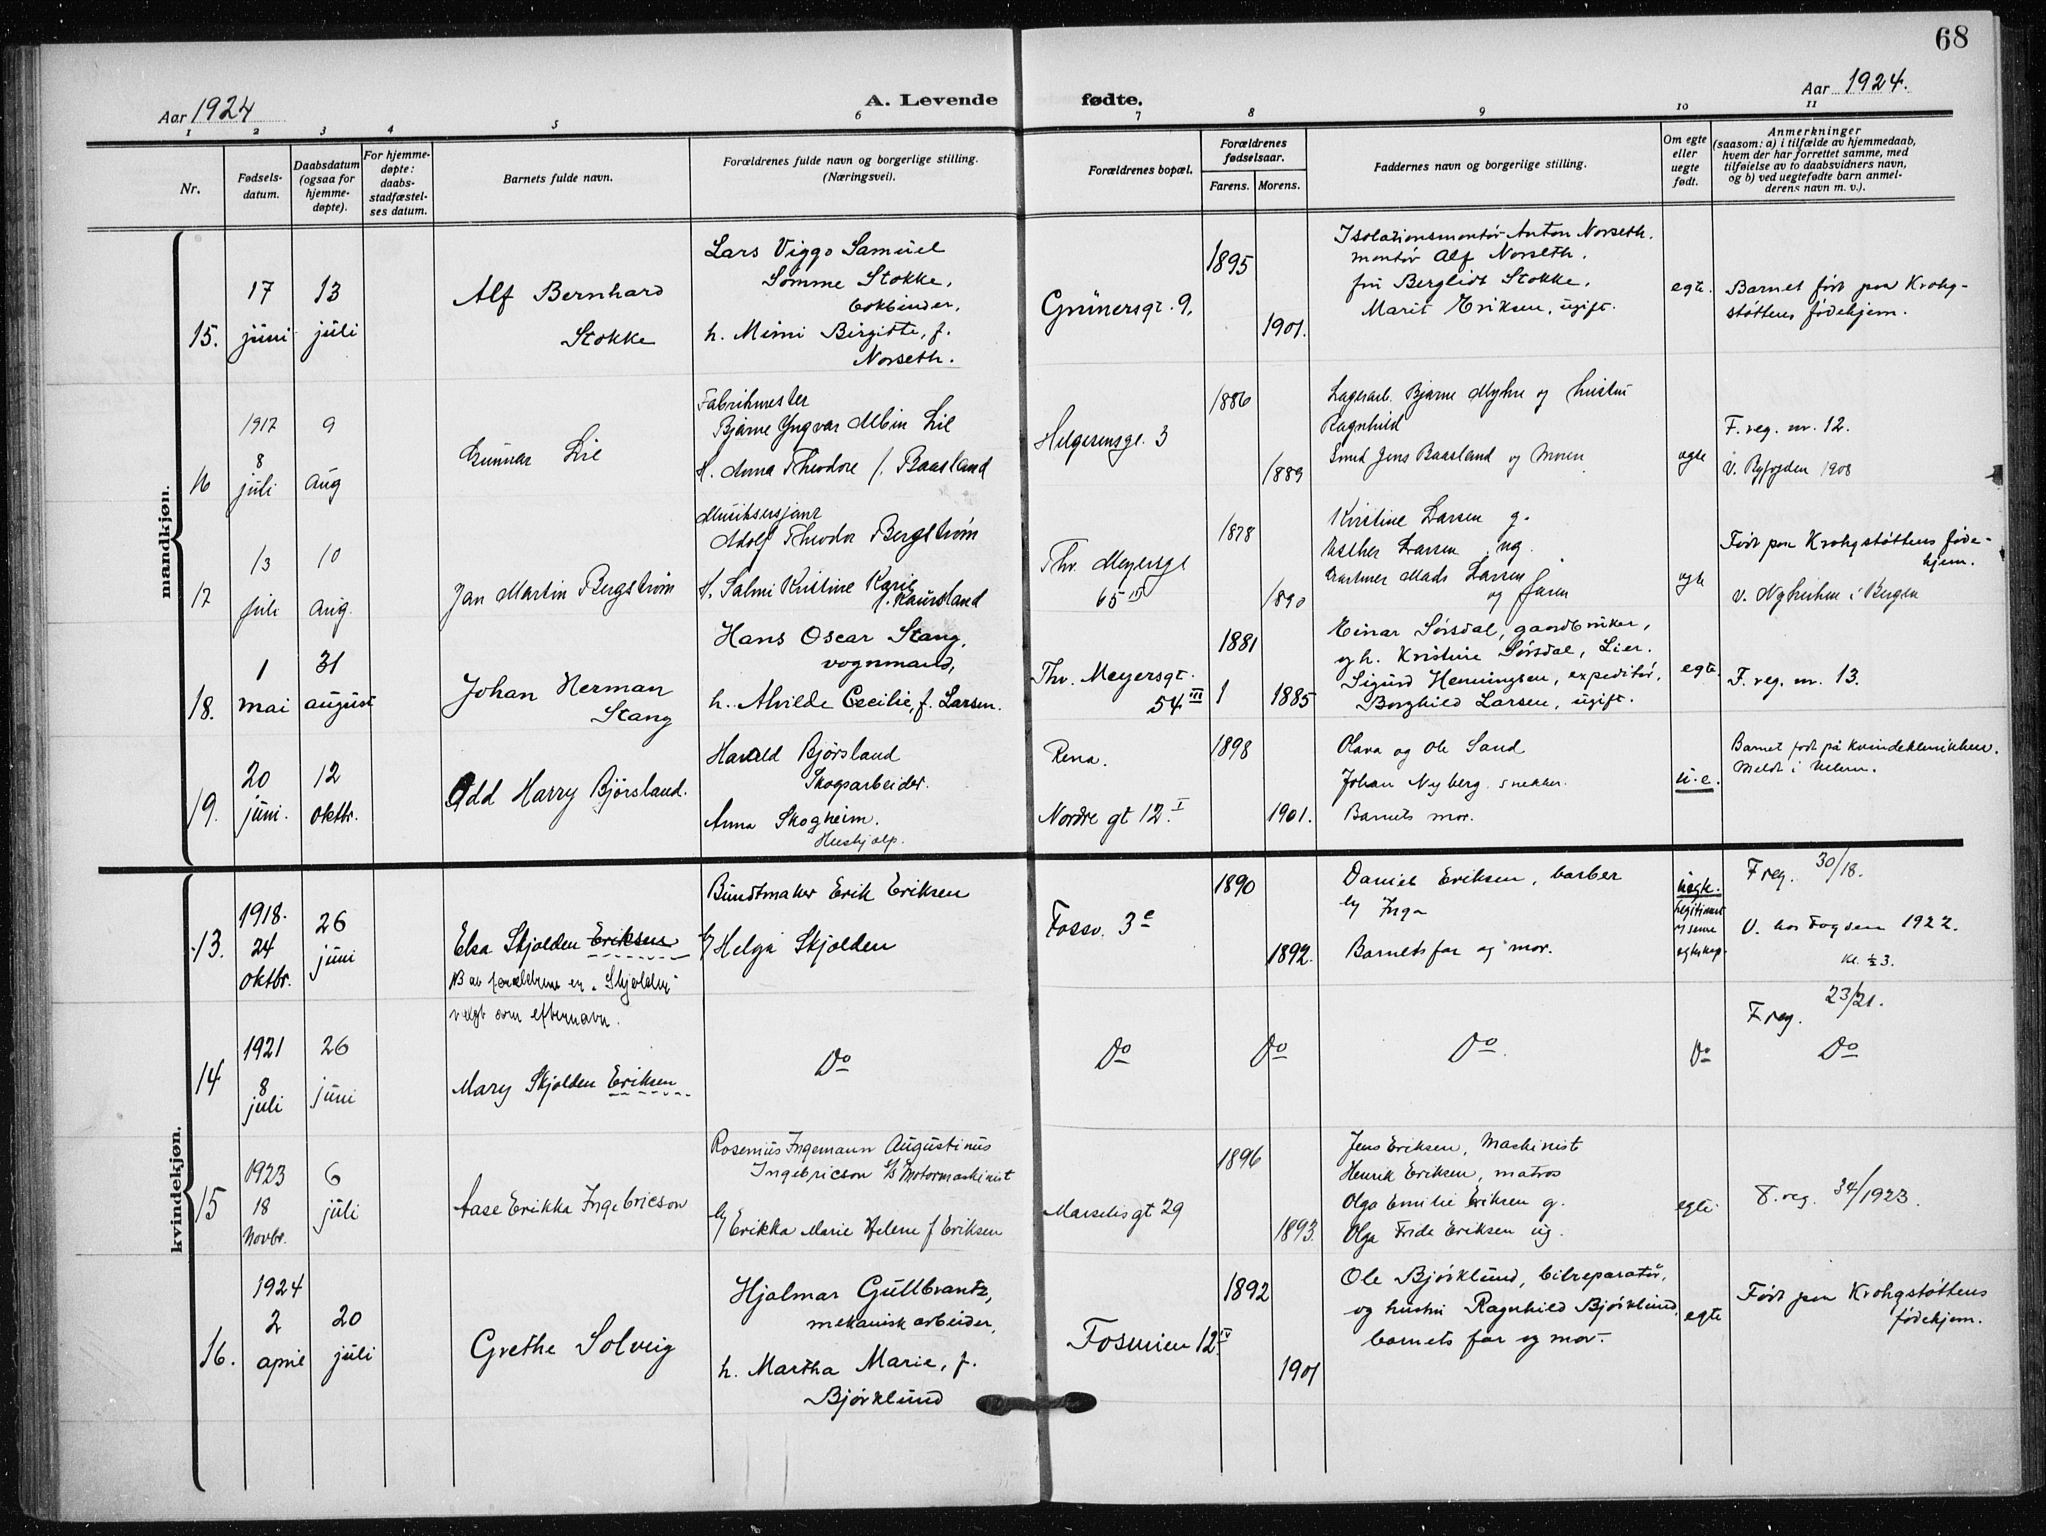 68
Aar 1924
A. Levende fødte.
Aar 1924.
1 2 3 4 5 6 7 8 9 10 11
Nr.
Fødsels-
datum.
Daabsdatum
(ogsaa for
hjemme-
døpte).
For hjemme-
døpte:
daabs-
stadfæstel-
ses datum.
Barnets fulde navn.
Forældrenes fulde navn og borgerlige stilling.
(Næringsvei).
Forældrenes bopæl.
Forældrenes
fødselsaar.
Farens. Morens.
Faddernes navn og borgerlige stilling.
Om egte
eller
uegte
født.
Anmerkninger
(saasom: a) i tilfælde av hjemmedaab,
hvem der har forrettet samme, med
tilføielse av to daabsvidners navn,
og b) ved uegtefødte barn anmel-
derens navn m. v.).
mandkjøn.
15.
17
juni
13
juli
Alf Bernhard
Stokke
Lars Viggo Samuel
Sømme Stokke,
bokbinder,
h. Mimi Birgitte, f.
Norseth.
Grünersgt. 9.
1895
1901.
Isolationsmontør Anton Norseth.
montør Alf Norseth.
fru Bergliot Stokke,
Marit Eriksen, ugift.
egte.
Barnet født paa Krohg-
støttens fødehjem.
16
1917
8
juli
9
aug
Gunnar Lie
Fabrikmester
Bjarne Yngvar Albin Lie
H. Anna Theodore f. Baasland
Helgesensgt. 3
1886
1889
Lagerarb. Bjarne Myhre og hustru
Ragnhild
Smed Jens Baasland og Moren
egte
F. reg. nr. 12.
V. Byfogden 1908
17
13
juli
10
aug.
Jan Martin Bergstrøm
Adolf Theodor Bergstrøm
H. Salmi Kristine Karie
f. Kaursland
Thv. Meyersgt
65 IV
1878
1890
Kristine Larsen g.
Esther Larsen ug.
Mads Larsen
og faren
egte
Født paa Krohgstøttens føde-
hjem.
V. Nykirken i Bergen
18.
1
mai
31
august
Johan Herman
Stang
Hans Oscar Stang,
vognmand,
h. Alvilde Cecilie, f. Larsen.
Thv. Meyersgt.
54 III
1881
1885
Einar Sørsdal, gaardbruker,
og h. Kristine Sørsdal, Lier.
Sigurd Henningsen, expeditør,
Borghild Larsen, ugift.
egte.
F. reg. nr. 13.
19.
20
juni.
12
oktbr.
Odd Harry Bjørsland.
Harald Bjørsland
Skogsarbeider.
Anna Skogheim.
Hushjelp.
Rena.
Nordre gt 12 I
1898
1901.
Olava og Ole Sand
Johan Nyberg. snekker.
Barnets mor.
u. e.
Barnet født på Kvindeklinikken.
Meldt i
kvindekjøn.
13.
1918.
24
oktbr.
26
juni
Elsa Skjolden Eriksen
NB av forældrene er "Skjolden"
valgt som efternavn.
Bundtmaker Erik Eriksen
og Helga Skjolden
Fossv. 3e
1890
1892.
Daniel Eriksen, barber
og Inga
Barnets far og mor.
uegte.
legitimert
v senere
egteskap.
F reg. 30/18.
V. hos Fogden 1922.
Kl. ½3.
14
1921
8
juli
26
juni
Mary Skjolden Eriksen
Do
Do
Do
Do
Do
F reg. 23/21.
Do
15
1923
18
Novbr.
6
juli
Aase Erikka Ingebricson
Rosenius Ingemann Augustinus
Ingebricson Motormaskinist
og Erikka Marie Helene f Eriksen
Marselis gt 29
1896
1893.
Jens Eriksen, Maskinist
Henrik Eriksen, matros
Olga Emilie Eriksen g.
Olga Fride Eriksen ug.
egte.
F. reg. 34/1923.
16.
1924
2
april
20
juli
Grethe Solveig
Hjalmar Gullbrantz,
mekanisk arbeider,
h. Martha Marie, f.
Bjørklund
Fosveien 12 IV
1892
1901
Ole Bjørklund, bilreparatør,
og hustru Ragnhild Bjørklund,
barnets far og mor.
egte
Født paa Krohgstøttens
fødehjem.